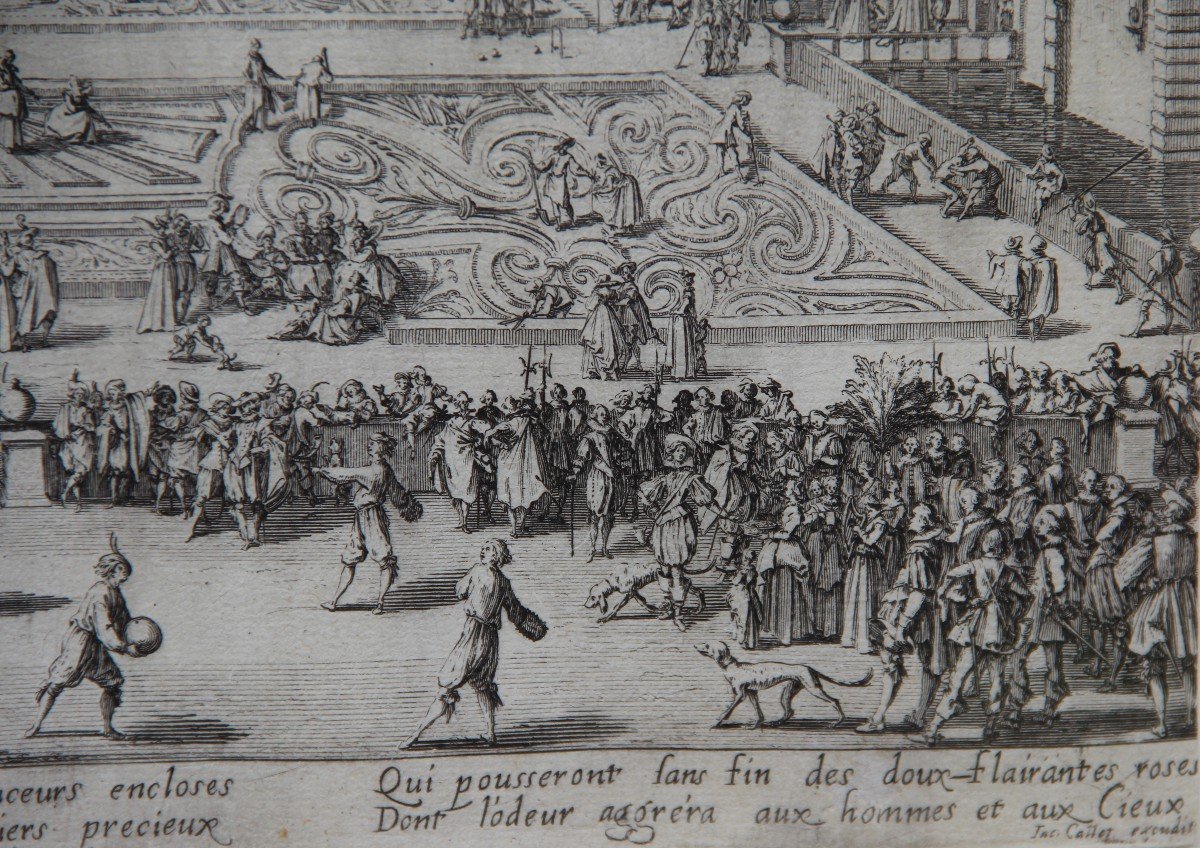 aceurs encloses
iers precieux
Qui pousseront sans fin des doux-flairantes roses
Dont l'ódeur aggréra aux hommes et aux Cieux
Jac. Callot excudit